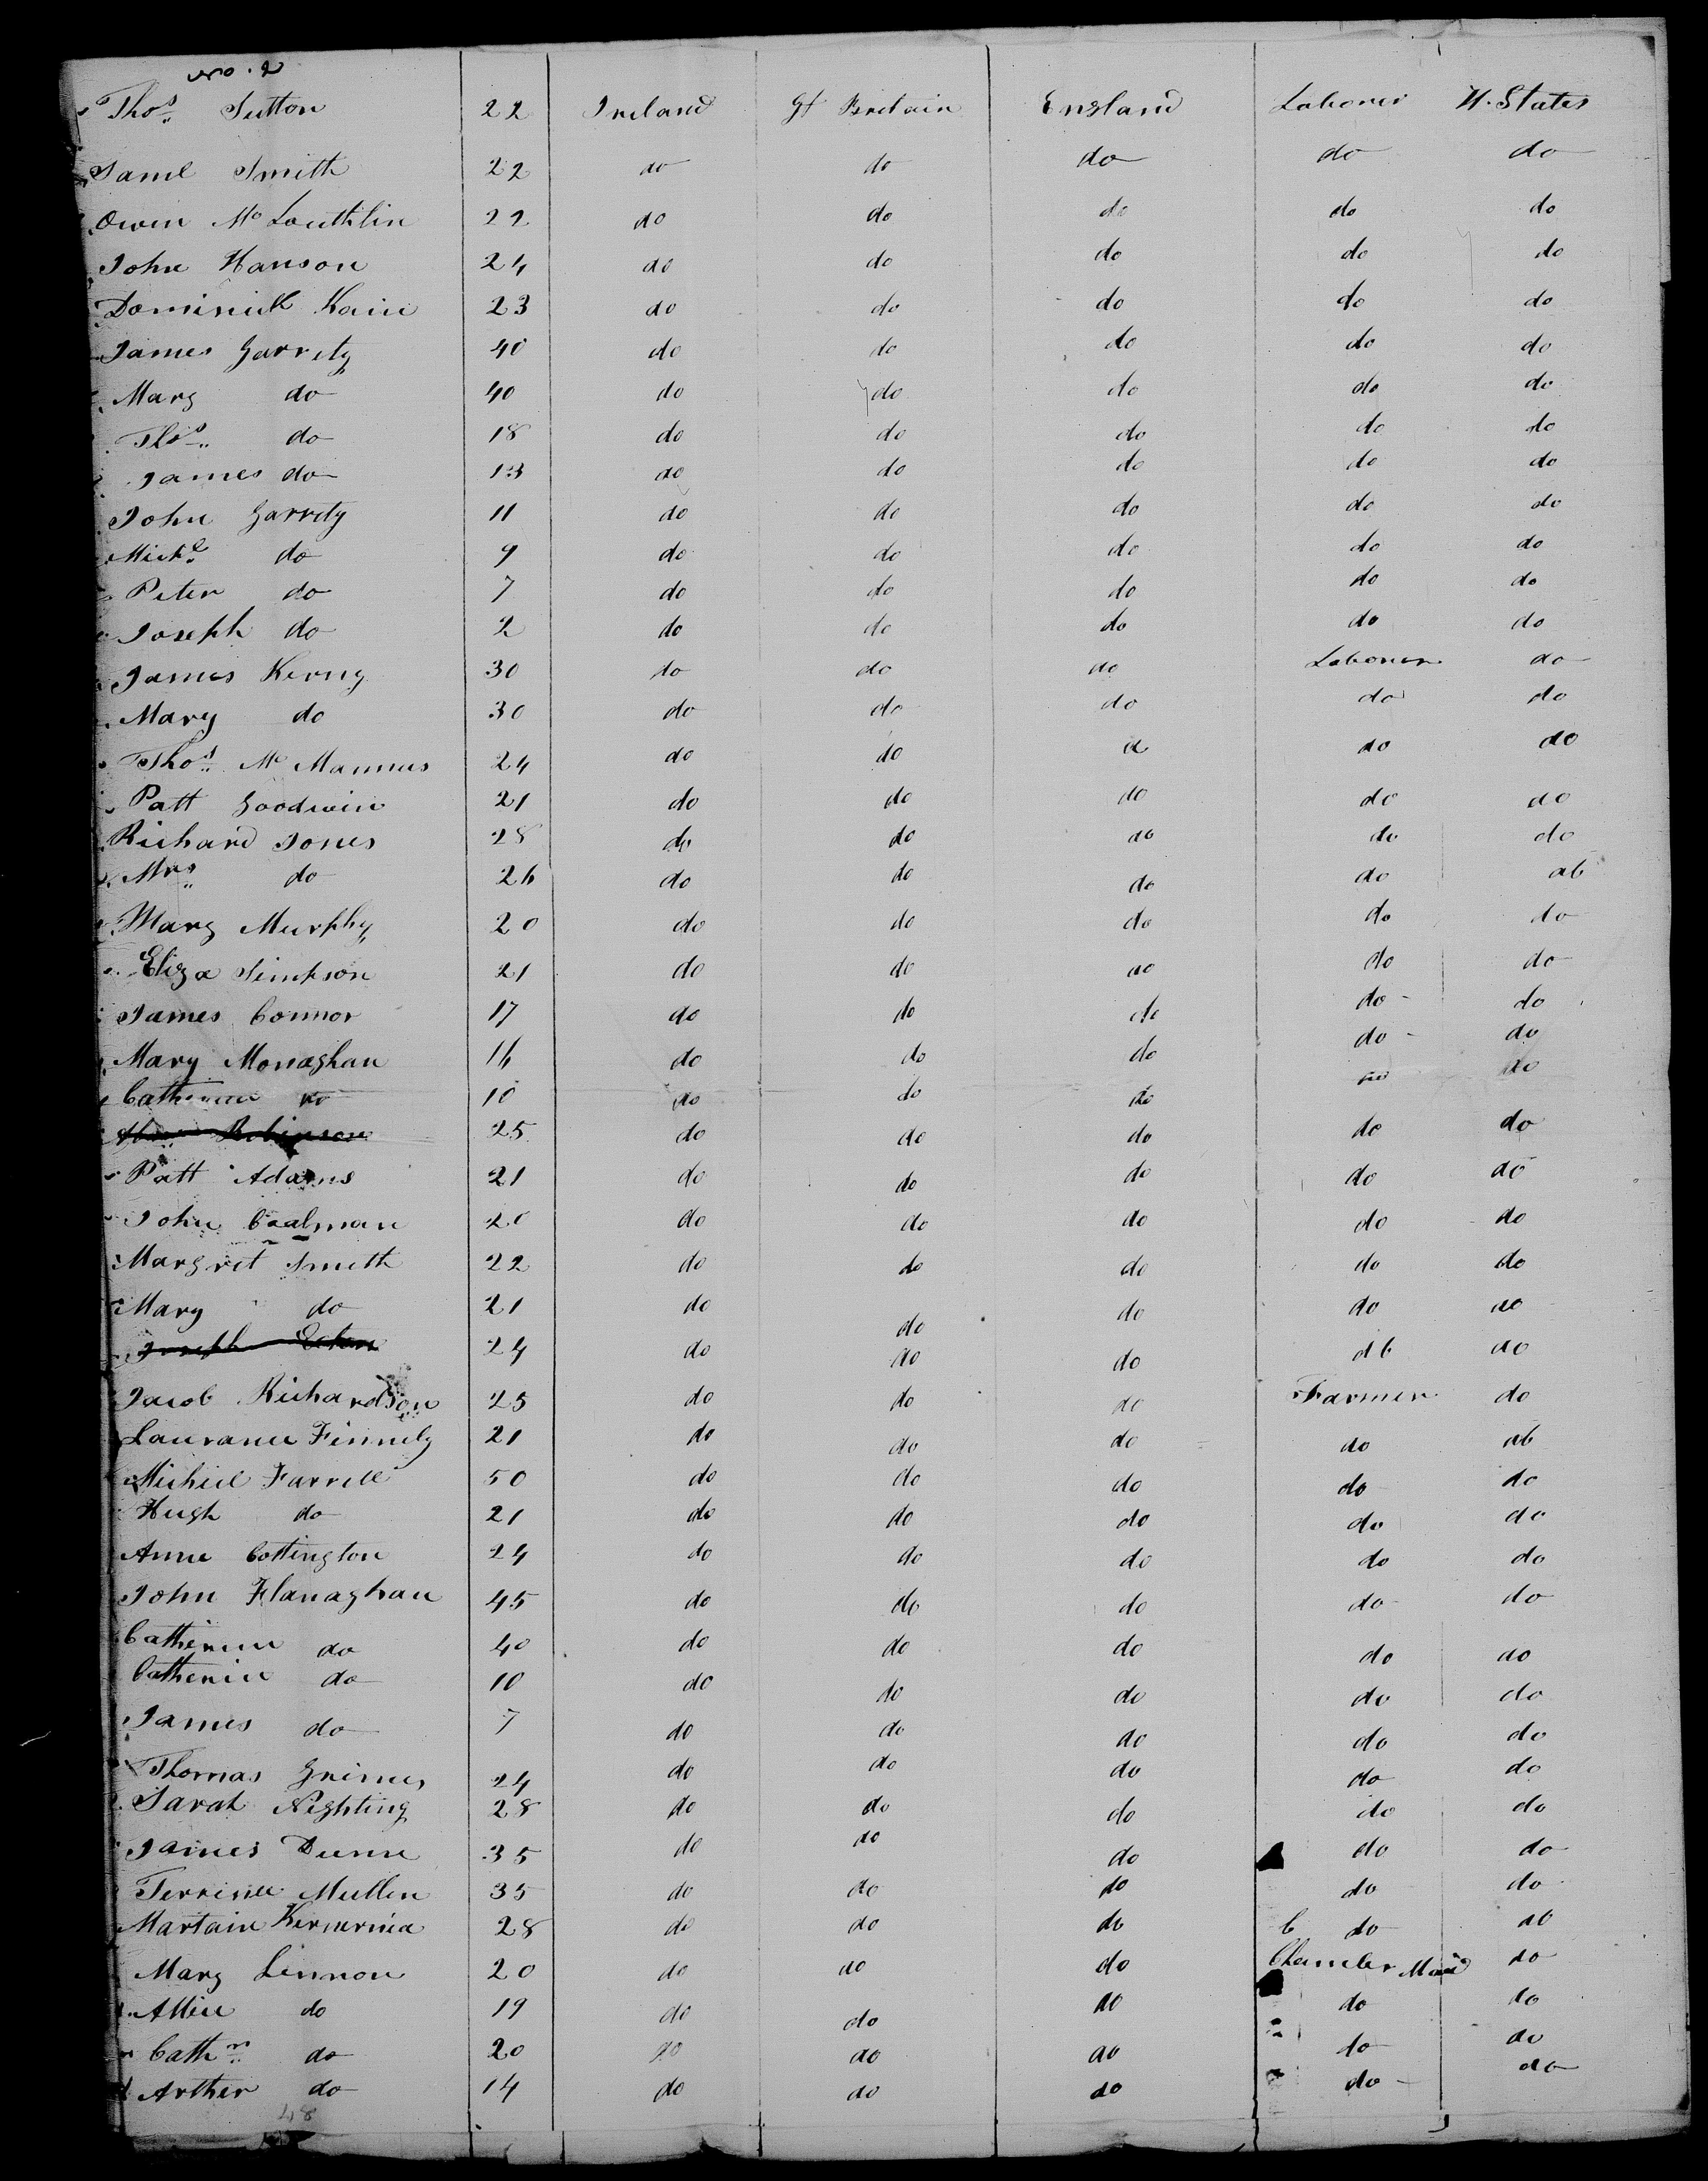 No. 2
Thos Sutton 22 Ireland Gt Britain England Laborer U. States
Saml Smith 22 do do do do do
Owen Mc Louthlin 22 do do do do do
John Hanson 24 do do do do do
Dominick Kain 23 do do do do do
James Garrety 40 do do do do do
Mary do 40 do do do do do
Thos do 18 do do do do do
James do 13 do do do do do
John Garrety 11 do do do do do
Michl do 9 do do do do do
Peter do 7 do do do do do
Joseph do 2 do do do do do
James Kerny 30 do do do Laborer do
Mary do 30 do do do do do
Thos Mc Mannus 24 do do d do do
Patt Goodwin 21 do do do do do
Richard Jones 28 do do do do do
Mrs do 26 do do do do do
Mary Murphy 20 do do do do do
Eliza Simpson 21 do do do do do
James Connor 17 do do do do do
Mary Monaghan 16 do do do do do
Catherine do 10 do do do do do
Robinson 25 do do do do do
Patt Adams 21 do do do do do
John Coalman 20 do do do do do
Margret Smith 22 do do do do do
Mary do 21 do do do do do
Joseph 24 do do do do do
Jacob Richardson 25 do do do Farmer do
Laurance Finnely 21 do do do do do
Michiel Farrell 50 do do do do do
Hugh do 21 do do do do do
Anne Cottington 24 do do do do do
John Flanaghan 45 do do do do do
Catherine do 40 do do do do do
Catherine do 10 do do do do do
James do 7 do do do do do
Thomas Grimes 24 do do do do do
Sarah Nighting 28 do do do do do
James Dunn 35 do do do do do
Terrence Mullen 35 do do do do do
Martain 28 do do do C do do
Mary Lennon 20 do do do Chamber Maid do
do 19 do do do do do
Cathn do 20 do do do do do
Arther do 14 do do do do do
48